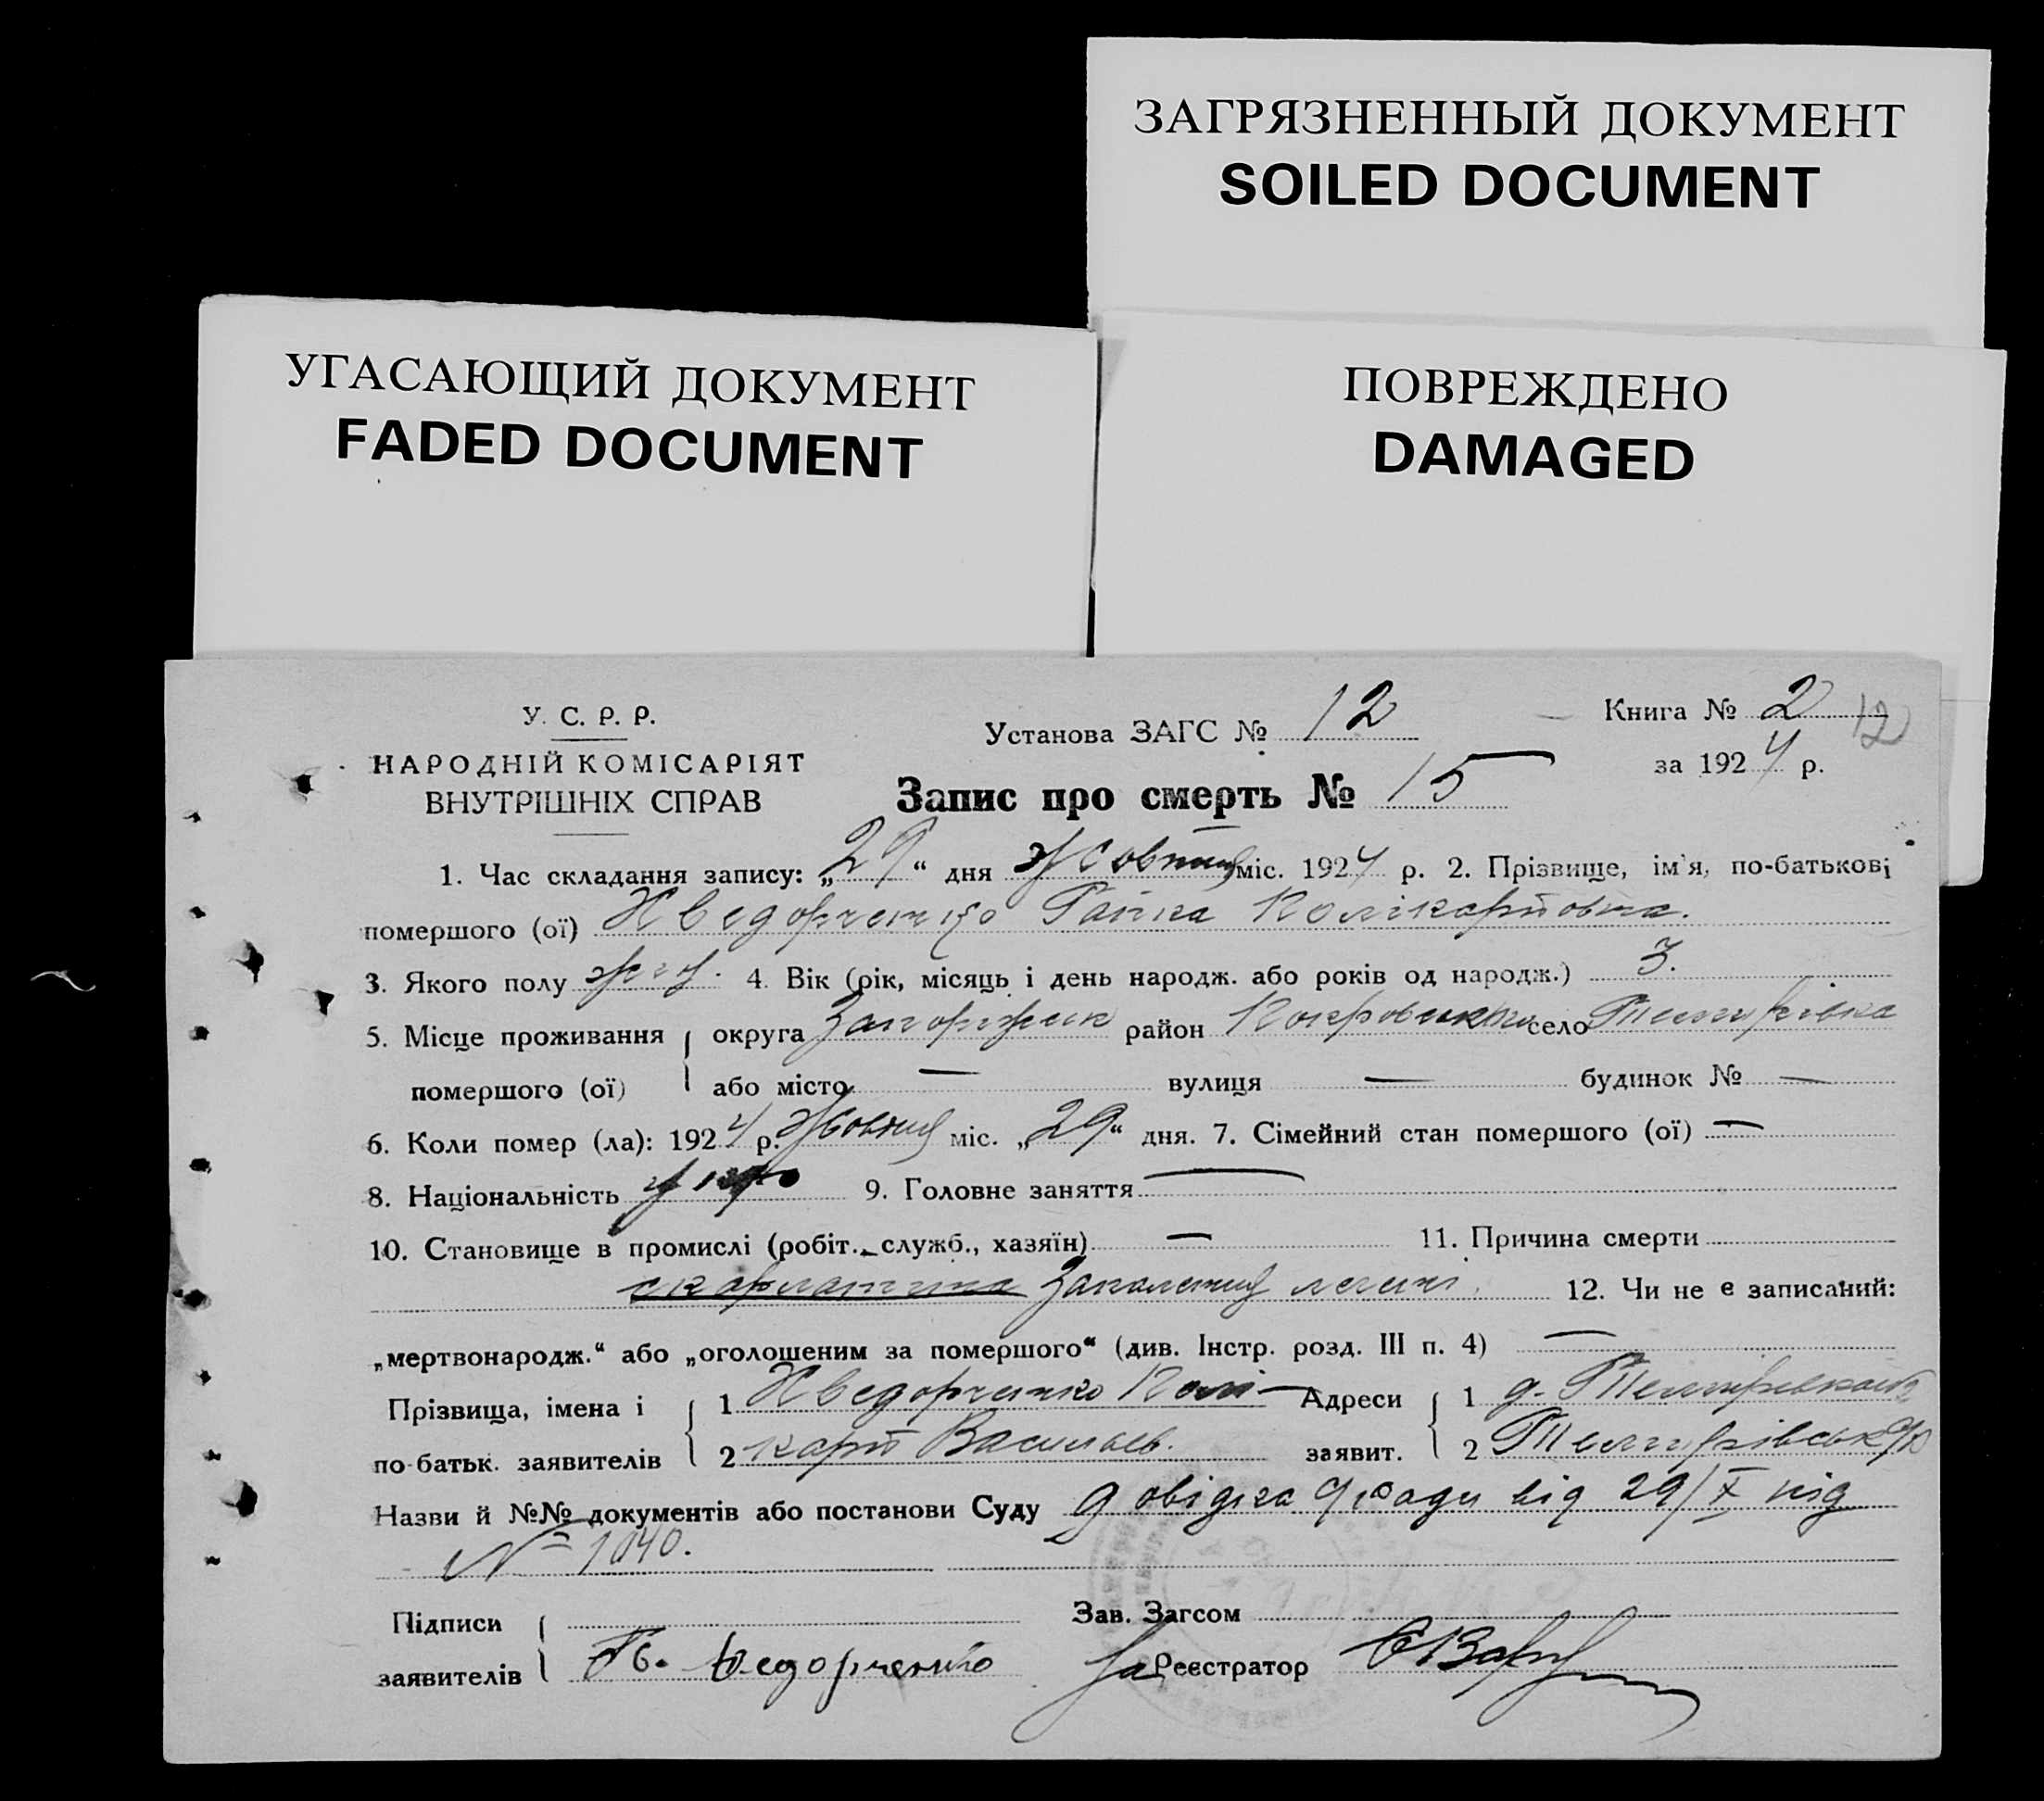 ЗАГРЯЗНЕННЫЙ ДОКУМЕНТ
SOILED DOCUMENT
УГАСАЮЩИЙ ДОКУМЕНТ
FADED DOCUMENT
ПОВРЕЖДЕНО
DAMAGED
У. С. Р. Р.
НАРОДНІЙ КОМІСАРІЯТ
ВНУТРІШНІХ СПРАВ
Установа ЗАГС № 12
Книга № 2 12
за 1924 р.
Запис про смерть № 15
1. Час складання запису: „29“ дня Жовтня міс. 1924 р. 2. Прізвище, ім'я, по-батькові
помершого (ої) Хведорченко Ганна Полікарповна.
3. Якого полу жін. 4. Вік (рік, місяць і день народж. або років од народж.) 3.
5. Місце проживання округа Запоріжж район Покровськ село
помершого (ої) або місто — вулиця — будинок № —
6. Коли помер (ла): 1924 р. Жовтня міс. „29“ дня. 7. Сімейний стан помершого (ої) —
8. Національність укр 9. Головне заняття —
10. Становище в промислі (робіт., служб., хазяїн) — 11. Причина смерти
скарлатина Запалення легені. 12. Чи не є записаний:
„мертвонародж.“ або „оголошеним за помершого“ (див. Інстр. розд. III п. 4) —
Прізвища, імена і 1 Хведорченко Полі- Адреси 1
по-батьк. заявителів 2 карп Васильев. заявит. 2
Назви й №№ документів або постанови Суду довідка с/ради від 29/X під
№ 1040.
Підписи Зав. Загсом
заявителів Федорченко За Реєстратор